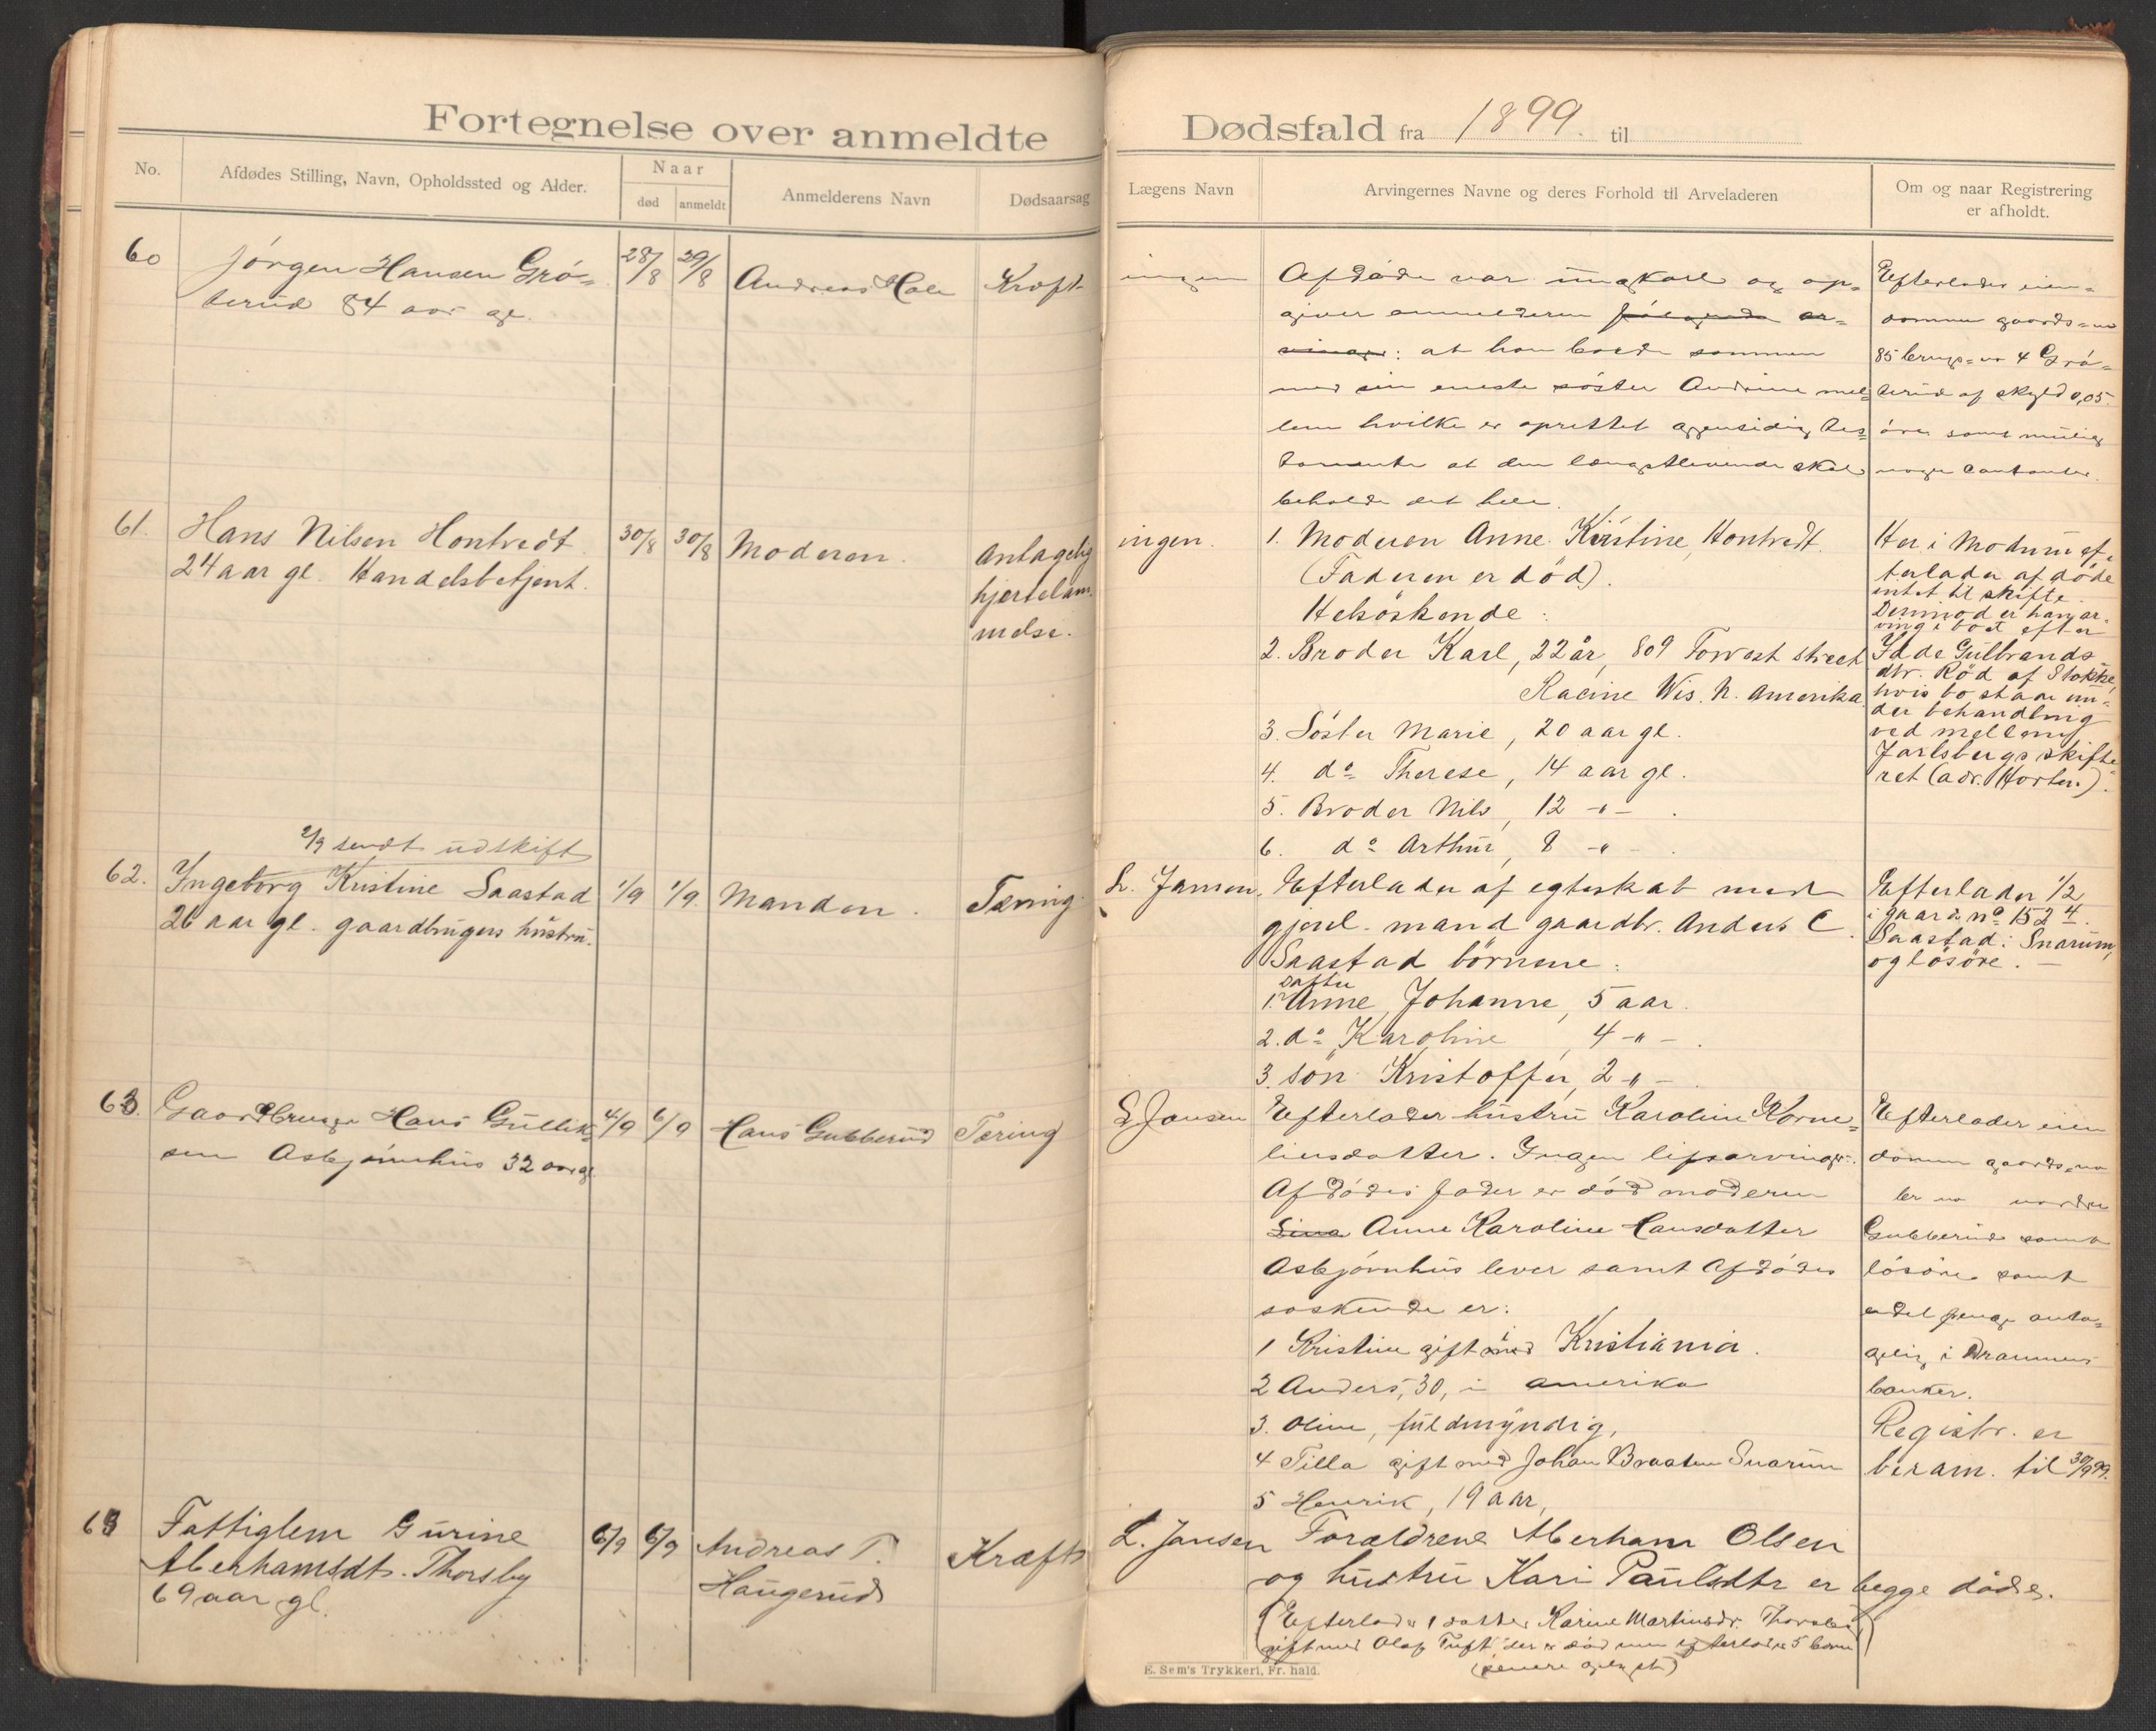 Fortegnelse over anmeldte
No.
Afdødes Stilling, Navn, Opholdssted og Alder.
Naar
død
anmeldt
Anmelderens Navn
Dødsaarsag
60
Jörgen Hansen Grö-
terud 84 aar gl.
28/8
29/8
Andreas Hole
Kræft
61.
Hans Nilsen Hontvedt
24 aar gl. Handelsbetjent.
30/8
30/8
Moderen.
Antagelig
hjertelam-
melse.
2/9 sendt udskift
62.
Ingeborg Kristine Saastad
26 aar gl. gaardbrugers hustru.
1/9
1/9.
Manden.
Tæring.
63.
Gaardbruger Hans Gullik-
sen Asbjörnhus 32 aar gl.
4/9
6/9
Hans Gubberud
Tæring
Fattiglem Gurine
Aberhamsdt. Thorsby
69 aar gl.
6/9
6/9
Andreas T.
Haugerud
Kræft
Dødsfald fra 1899. til
Lægens Navn
Arvingernes Navne og deres Forhold til Arveladeren
Om og naar Registrering
er afholdt.
ingen
Afdöde var ungkarl og op-
giver anmelderen fölgende ar-
vinger: at han boede sammen
med sin eneste söster Andrine mel-
lem hvilke er oprettet gjensidig tes-
tamente at den længstlevende skal
beholde det hele.
Efterlader eien-
dommen gaards-no
85 brugs-no 4 Grö-
terud af skyld 0,05
öre samt mulig
nogen contanter.
ingen.
1. Moderen Anne Kirstine Hontvedt.
(Faderen er död).
Helsöskende:
2. Broder Karl, 22 år, 809 Forrest street
Racine Wis. N. Amerika.
3. Söster Marie, 20 aar gl.
4. do Therese, 14 aar gl.
5. Broder Nils, 12 -"-.
6. do Arthur, 8 -"-.
Her i Modum ef-
terlader afdöde
intet til skifte.
Derimod er han ar-
ving i boet efter
Gulbrands-
dtr. Röd af Stokke,
hvis bo staar un-
der behandling
ved mellem
Jarlsbergs skifte-
ret (adr. Horten).
L. Jansen.
Efterlader af egteskab med
gjenl. mand gaardbr. Anders C.
Saastad börnene:
datter
1. Anne Johanne, 5 aar.
2. do Karoline, 4 -"-.
3. sön Kristoffer, 2 -"-.
Efterlader 1/2
i gaard no 152 4.
Saastad i Snarum,
og lösöre. —
L. Jansen
Efterlader hustru Karoline Korne-
liusdatter. Ingen livsarvinger.
Afdödes fader er död moderen
Anne Karoline Hansdatter
Asbjörnhus lever samt Afdödes
söskende er:
1 Kristine gift i Kristiania.
2 Anders, 30, i Amerika
3. Oline, fuldmyndig,
4 Tilla gift med Johan Braaten Snarum
5 Henrik, 19 aar,
Efterlader eien
dommen gaards-no
br no nordre
Gubberud samt
lösöre samt
endel penge anta-
gelig i Drammens
banker.
Registr. er
beram. til 30/9 99.
L. Jansen
Forældrene Aberham Olsen
og hustru Kari Paulsdtr er begge döde.
(Efterlader 1 datter Karine Martinsdr. Thorsby
gift med Olaf Tuft der er död men efterlader 5 börn)
E. Sem's Trykkeri, Fr. hald.